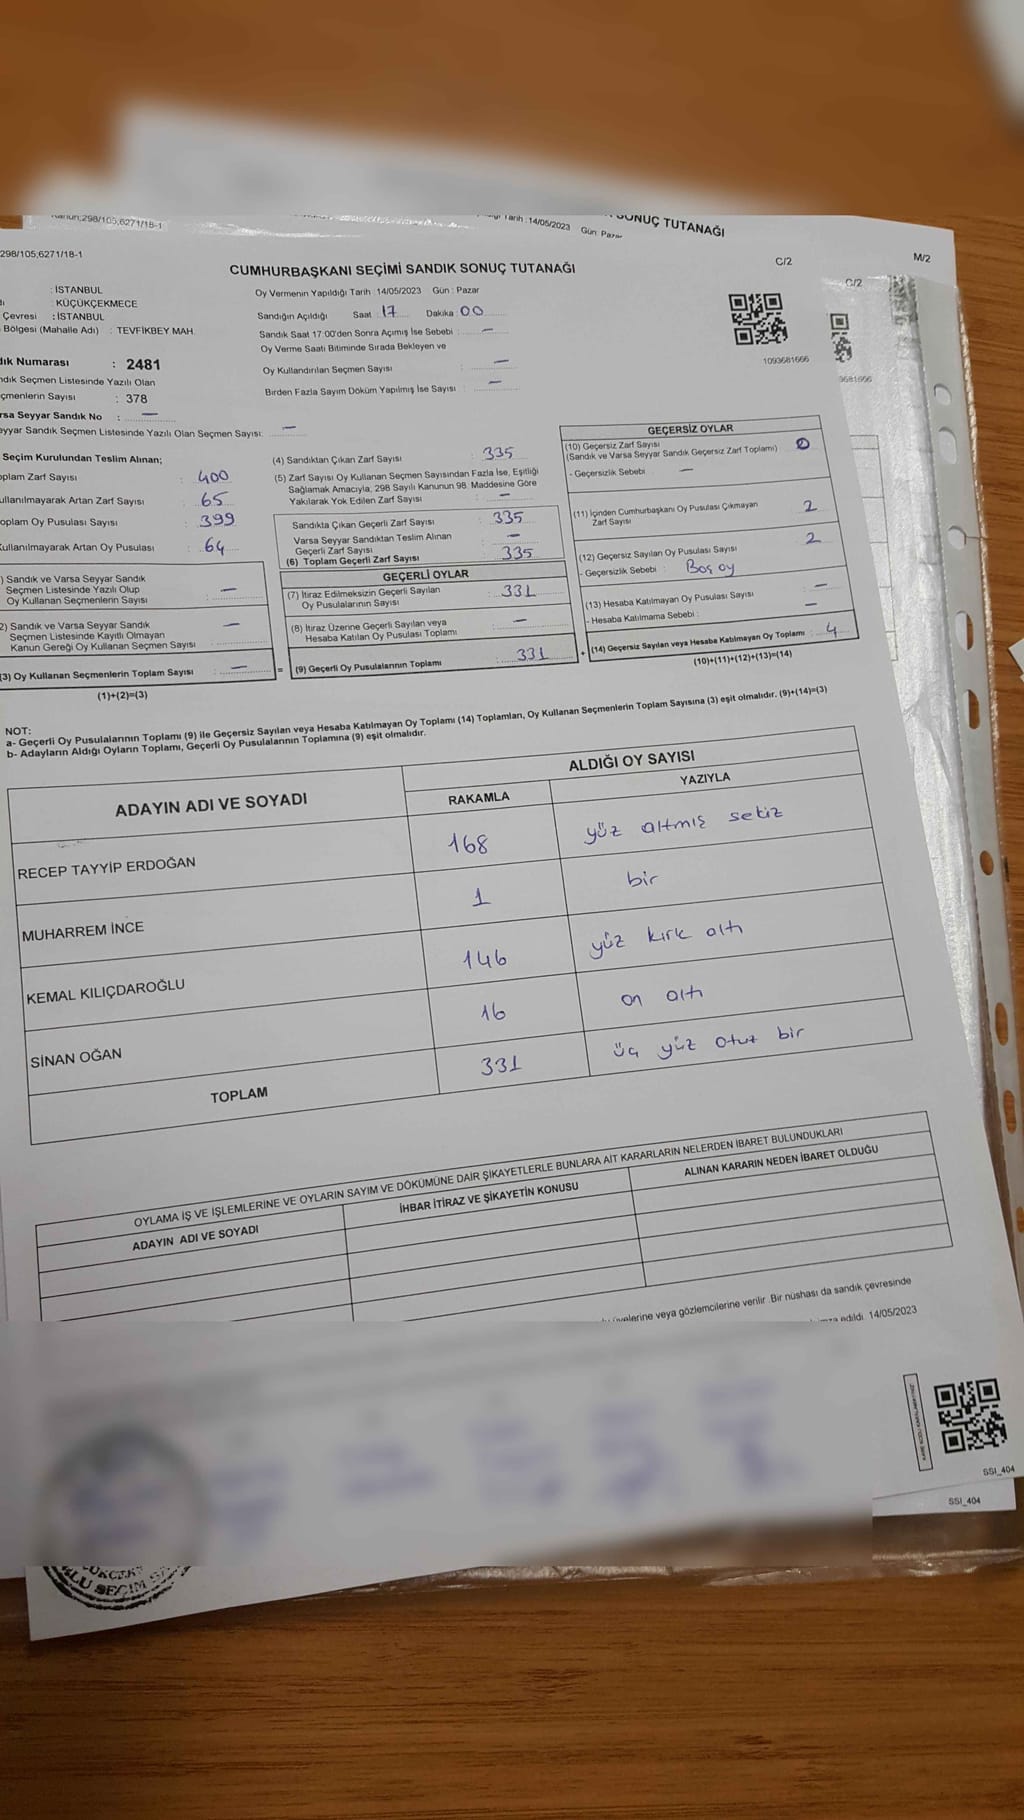 Kanun;298/105;6271/18-1
Tarih :14/05/2023 Gün: Pazar
SONUÇ TUTANAĞI
C/2
M/2
298/105;6271/18-1
CUMHURBAŞKANI SEÇİMİ SANDIK SONUÇ TUTANAĞI
C/2
: İSTANBUL
: KÜÇÜKÇEKMECE
Çevresi : İSTANBUL
Bölgesi (Mahalle Adı) : TEVFİKBEY MAH.
Numarası : 2481
Seçmen Listesinde Yazılı Olan
Sayısı : 378
Seyyar Sandık No : —
Seyyar Sandık Seçmen Listesinde Yazılı Olan Seçmen Sayısı: —
Oy Vermenin Yapıldığı Tarih :14/05/2023 Gün : Pazar
Sandığın Açıldığı Saat :17 Dakika :00
Sandık Saat 17:00'den Sonra Açımış İse Sebebi : —
Oy Verme Saati Bitiminde Sırada Bekleyen ve
Oy Kullandırılan Seçmen Sayısı : —
Birden Fazla Sayım Döküm Yapılmış İse Sayısı : —
1093681666
Seçim Kurulundan Teslim Alınan;
Zarf Sayısı : 400
Artan Zarf Sayısı : 65
Oy Pusulası Sayısı : 399
Artan Oy Pusulası : 64
Sandık ve Varsa Seyyar Sandık
Seçmen Listesinde Yazılı Olup
Oy Kullanan Seçmenlerin Sayısı : —
Sandık ve Varsa Seyyar Sandık
Seçmen Listesinde Kayıtlı Olmayan
Kanun Gereği Oy Kullanan Seçmen Sayısı : —
(3) Oy Kullanan Seçmenlerin Toplam Sayısı : —
(1)+(2)=(3)
(4) Sandıktan Çıkan Zarf Sayısı : 335
(5) Zarf Sayısı Oy Kullanan Seçmen Sayısından Fazla İse, Eşitliği
Sağlamak Amacıyla, 298 Sayılı Kanunun 98. Maddesine Göre
Yakılarak Yok Edilen Zarf Sayısı : —
Sandıkta Çıkan Geçerli Zarf Sayısı : 335
Varsa Seyyar Sandıktan Teslim Alınan
Geçerli Zarf Sayısı : —
(6) Toplam Geçerli Zarf Sayısı : 335
GEÇERLİ OYLAR
(7) İtiraz Edilmeksizin Geçerli Sayılan
Oy Pusulalarının Sayısı : 331
(8) İtiraz Üzerine Geçerli Sayılan veya
Hesaba Katılan Oy Pusulası Toplamı : —
= (9) Geçerli Oy Pusulalarının Toplamı : 331
GEÇERSİZ OYLAR
(10) Geçersiz Zarf Sayısı
(Sandık ve Varsa Seyyar Sandık Geçersiz Zarf Toplamı) : 0
- Geçersizlik Sebebi : —
(11) İçinden Cumhurbaşkanı Oy Pusulası Çıkmayan
Zarf Sayısı : 2
(12) Geçersiz Sayılan Oy Pusulası Sayısı : 2
- Geçersizlik Sebebi : Boş oy
(13) Hesaba Katılmayan Oy Pusulası Sayısı : —
- Hesaba Katılmama Sebebi : —
+ (14) Geçersiz Sayılan veya Hesaba Katılmayan Oy Toplamı : 4
(10)+(11)+(12)+(13)=(14)
NOT:
a- Geçerli Oy Pusulalarının Toplamı (9) ile Geçersiz Sayılan veya Hesaba Katılmayan Oy Toplamı (14) Toplamları, Oy Kullanan Seçmenlerin Toplam Sayısına (3) eşit olmalıdır. (9)+(14)=(3)
b- Adayların Aldığı Oyların Toplamı, Geçerli Oy Pusulalarının Toplamına (9) eşit olmalıdır.
ADAYIN ADI VE SOYADI
ALDIĞI OY SAYISI
RAKAMLA YAZIYLA
RECEP TAYYİP ERDOĞAN 168 yüz altmış sekiz
MUHARREM İNCE 1 bir
KEMAL KILIÇDAROĞLU 146 yüz kırk altı
SİNAN OĞAN 16 on altı
TOPLAM 331 üç yüz otuz bir
OYLAMA İŞ VE İŞLEMLERİNE VE OYLARIN SAYIM VE DÖKÜMÜNE DAİR ŞİKAYETLERLE BUNLARA AİT KARARLARIN NELERDEN İBARET BULUNDUKLARI
ADAYIN ADI VE SOYADI İHBAR İTİRAZ VE ŞİKAYETİN KONUSU ALINAN KARARIN NEDEN İBARET OLDUĞU
veya gözlemcilerine verilir. Bir nüshası da sandık çevresinde
edildi. 14/05/2023
SSI_404
SSI_404
SEÇİM